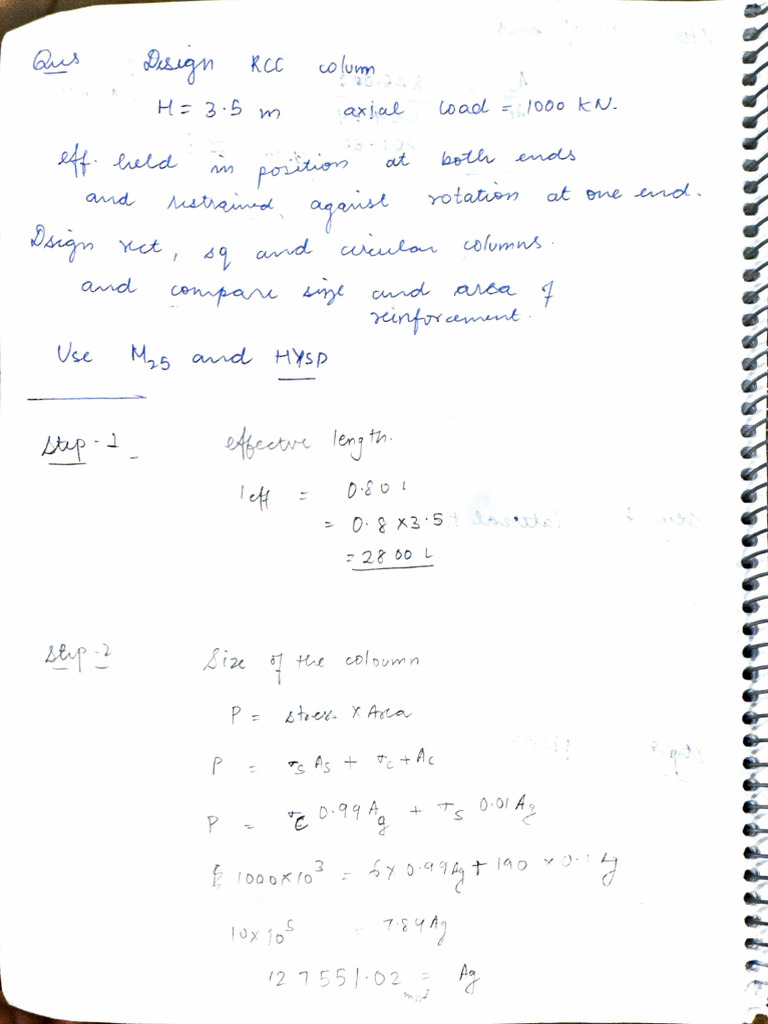 Qus Design RCC column
H = 3.5 m axial load = 1000 KN.
eff. held in position at both ends
and restrained against rotation at one end.
Dsign rect, sq and circular columns.
and compare size and area of
reinforcement.
Use M25 and HYSD
Step - 1 effective length.
leff = 0.80 l
= 0.8 x 3.5
= 2800 L
Step - 2 Size of the coloumn
P = stress x Area
P = σs As + σc + Ac
P = σc 0.99 Ag + σs 0.01 Ag
1000x10³ = 6x 0.99Ag + 190 x Ag
10x10⁵ = 7.84 Ag
127551.02 = Ag